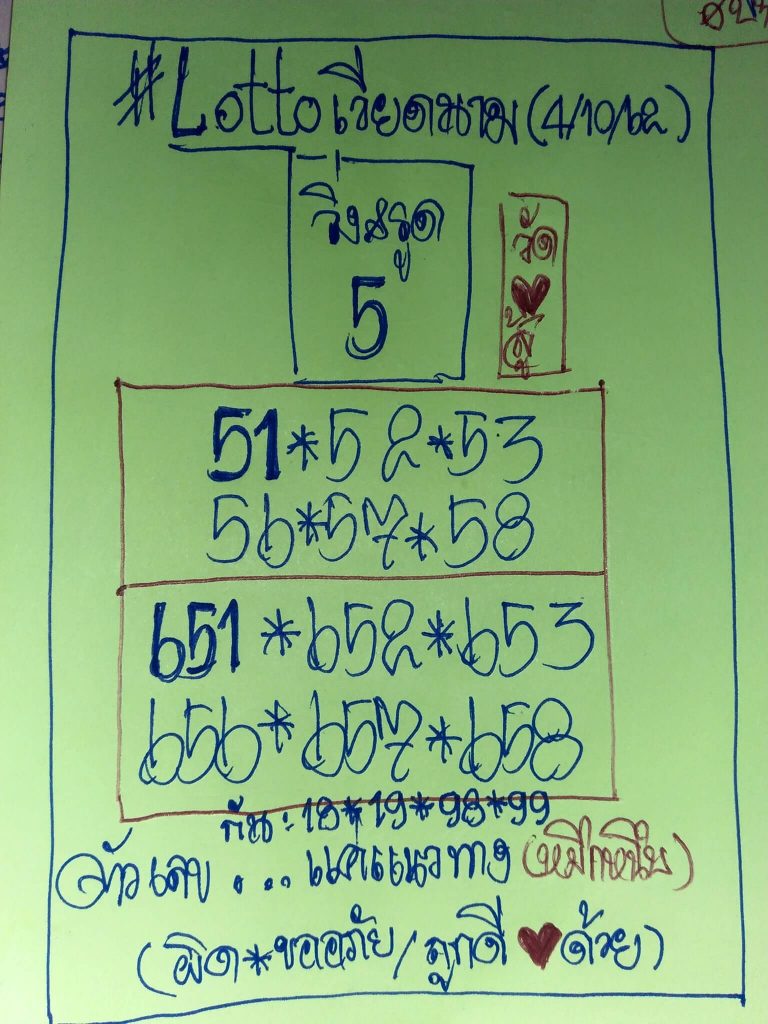 #Lottoเวียดนาม (4/10/62)
วิ่งรูด
5
จัด
♥
51*52*53
56*57*58
651*652*653
656*657*658
กัน: 18*19*98*99
ตัวเลข ... แค่แนวทาง
(ผิด*ขออภัย/ถูกดี♥ด้วย)